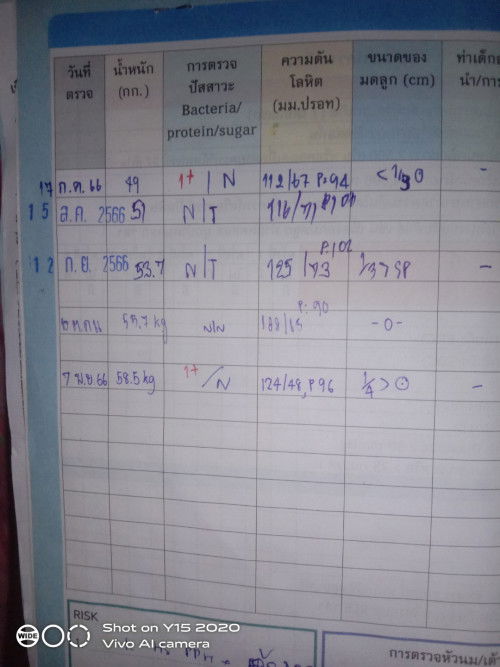 วันที่ตรวจ น้ำหนัก (กก.) การตรวจปัสสาวะ Bacteria/protein/sugar ความดันโลหิต (มม.ปรอท) ขนาดของมดลูก (cm) ท่าเด็ก นำ/กา
17 ก.ค. 66 49 1+ / N 112/67 P:94 < 1/3 -
15 ส.ค. 2566 51 N/T 116/71
12 ก.ย. 2566 53.7 N/T 125/73 P:102 1/3 > SP -
55.7 kg N/N P: 90 -0-
7 พ.ย. 66 58.5 kg 1+/N 124/48, P 96 1/4 > -
RISK
การตรวจหัวนม/เต้
WIDE Shot on Y15 2020
Vivo AI camera